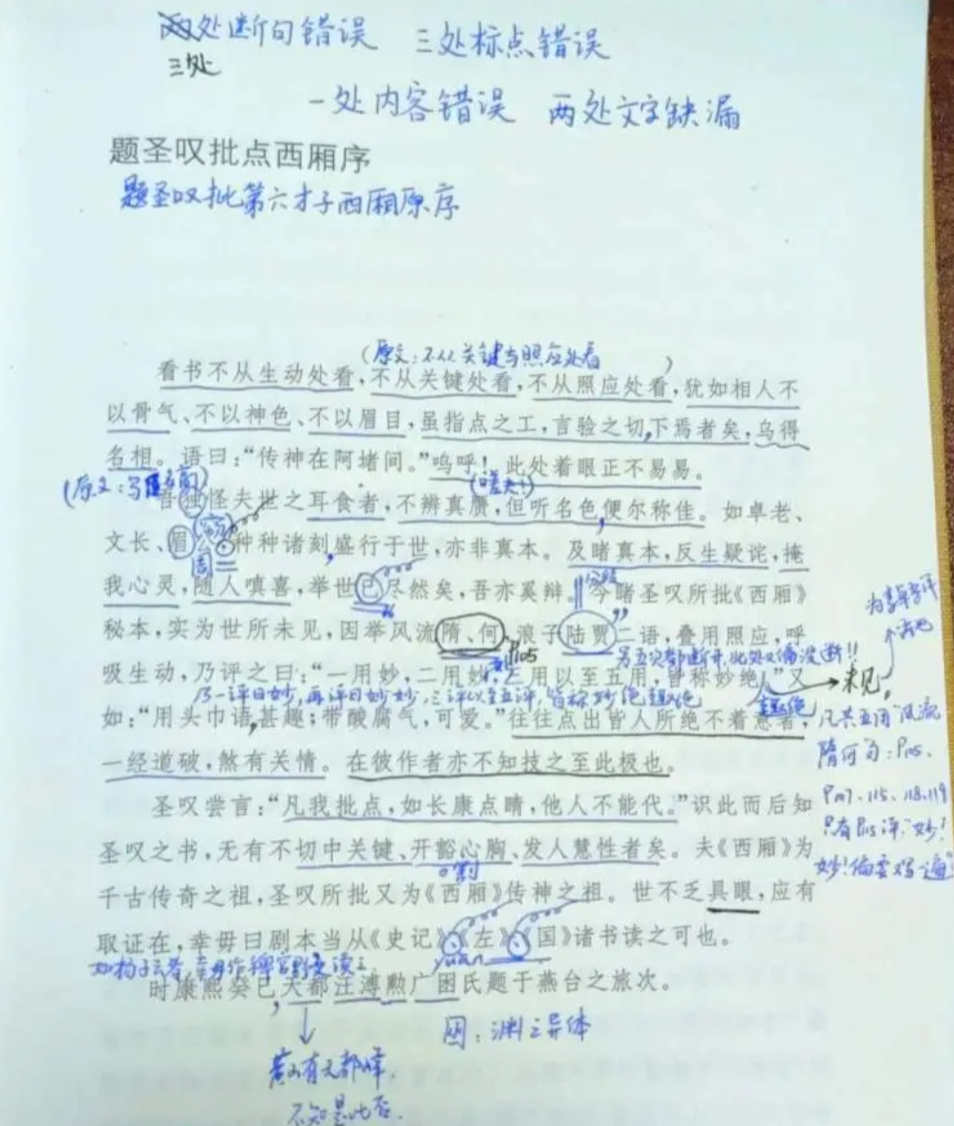 两处断句错误 三处标点错误
三处
一处内容错误 两处文字缺漏
题圣叹批点西厢序
题圣叹批第六才子西厢原序
(原文:不从关键与照应处看)
看书不从生动处看,不从关键处看,不从照应处看,犹如相人不
以骨气、不以神色、不以眉目,虽指点之工,言验之切,下焉者矣,乌得
名相。语曰:“传神在阿堵间。”呜呼!此处着眼正不易易。
(嗟夫!)
吾独怪夫世之耳食者,不辨真赝,但听名色便尔称佳。如卓老、
文长、眉公种种诸刻,盛行于世,亦非真本。及睹真本,反生疑诧,掩
我心灵,随人嗔喜,举世已尽然矣,吾亦奚辩。今睹圣叹所批《西厢》
秘本,实为世所未见,因举风流隋、何,浪子陆贾二语,叠用照应,呼
吸生动,乃评之曰:“一用妙,二用妙,三用以至五用,皆称妙绝。”又
乃一评曰妙,再评曰妙妙,三评以至五评,皆称妙绝趣绝
如:“用头巾语甚趣;带酸腐气,可爱。”往往点出皆人所绝不着意者,
一经道破,煞有关情。在彼作者亦不知技之至此极也。
圣叹尝言:“凡我批点,如长康点睛,他人不能代。”识此而后知
圣叹之书,无有不切中关键、开豁心胸、发人慧性者矣。夫《西厢》为
千古传奇之祖,圣叹所批又为《西厢》传神之祖。世不乏具眼,应有
取证在,幸毋曰剧本当从《史记》《左》《国》诸书读之可也。
时康熙癸已天都汪溥勲广困氏题于燕台之旅次。
囦:渊之异体
黄山有天都峰,
不知是此否.
未见。
凡共五用“风流
隋何”句:P105.
P107、115、118、119
只有P115评:“妙!